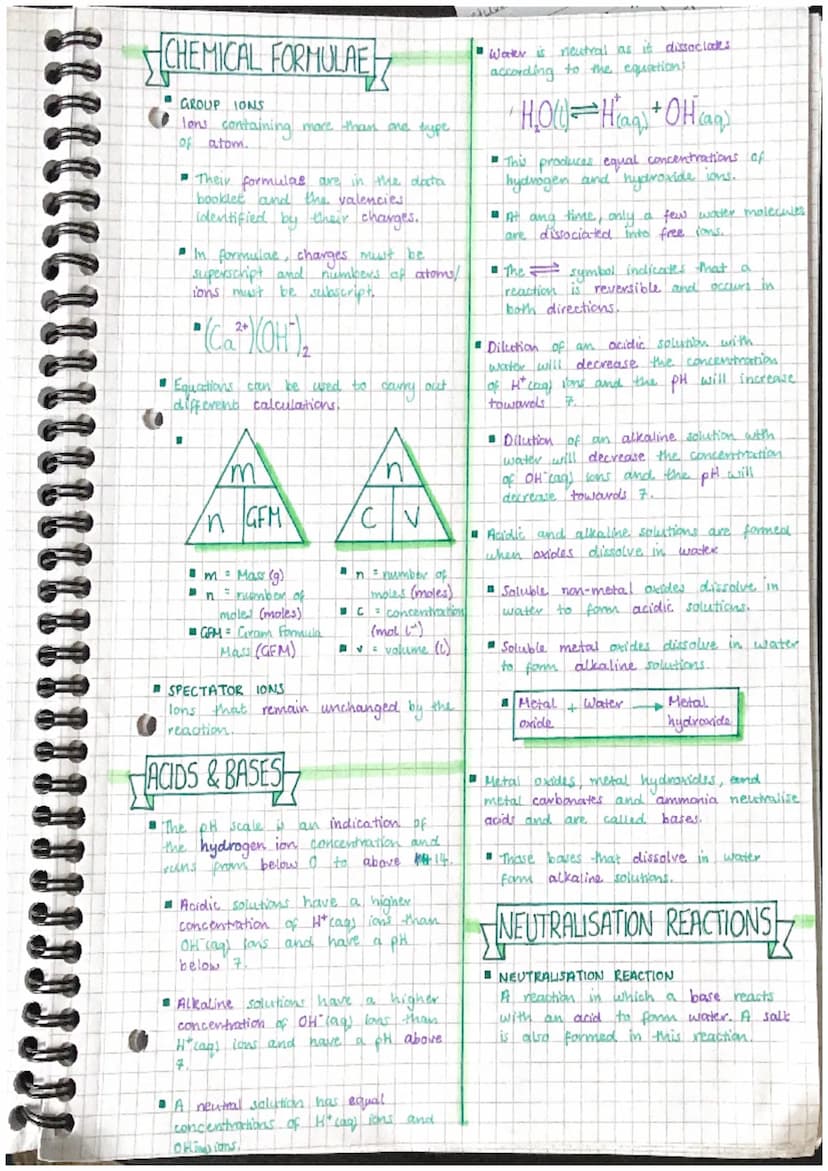 CHEMICAL FORMULAE
▪ GROUP IONS
Ions containing more than one type
of atom.
▪ Their formulae are in the data
booklet and the valencies
identified by their charges.
▪ In formulae, charges must be
superscript and numbers of atoms/
ions must be subscript.
▪ (Ca²⁺)(OH⁻)₂
▪ Equations can be used to carry out
different calculations.
▪
m
n GFM
n
C V
▪ m = Mass (g)
▪ n = number of
moles (moles)
▪ GFM = Gram Formula
Mass (GFM)
▪ n = number of
moles (moles)
▪ C = concentration
(mol L⁻¹)
▪ v = volume (L)
▪ SPECTATOR IONS
Ions that remain unchanged by the
reaction.
ACIDS & BASES
▪ The pH scale is an indication of
the hydrogen ion concentration and
runs from below 0 to above 14.
▪ Acidic solutions have a higher
concentration of H⁺(aq) ions than
OH⁻(aq) ions and have a pH
below 7.
▪ Alkaline solutions have a higher
concentration of OH⁻(aq) ions than
H⁺(aq) ions and have a pH above
7.
▪ A neutral solution has equal
concentrations of H⁺(aq) ions and
OH⁻(aq) ions.
▪ Water is neutral as it dissociates
according to the equation:
H₂O(l) ⇌ H⁺(aq) + OH⁻(aq)
▪ This produces equal concentrations of
hydrogen and hydroxide ions.
▪ At any time, only a few water molecules
are dissociated into free ions.
▪ The ⇌ symbol indicates that a
reaction is reversible and occurs in
both directions.
▪ Dilution of an acidic solution with
water will decrease the concentration
of H⁺(aq) ions and the pH will increase
towards 7.
▪ Dilution of an alkaline solution with
water will decrease the concentration
of OH⁻(aq) ions and the pH will
decrease towards 7.
▪ Acidic and alkaline solutions are formed
when oxides dissolve in water
▪ Soluble non-metal oxides dissolve in
water to form acidic solutions.
▪ Soluble metal oxides dissolve in water
to form alkaline solutions.
▪ Metal + Water → Metal
oxide hydroxide
▪ Metal oxides, metal hydroxides, and
metal carbonates and ammonia neutralise
acids and are called bases.
▪ Those bases that dissolve in water
form alkaline solutions.
NEUTRALISATION REACTIONS
▪ NEUTRALISATION REACTION
A reaction in which a base reacts
with an acid to form water. A salt
is also formed in this reaction.